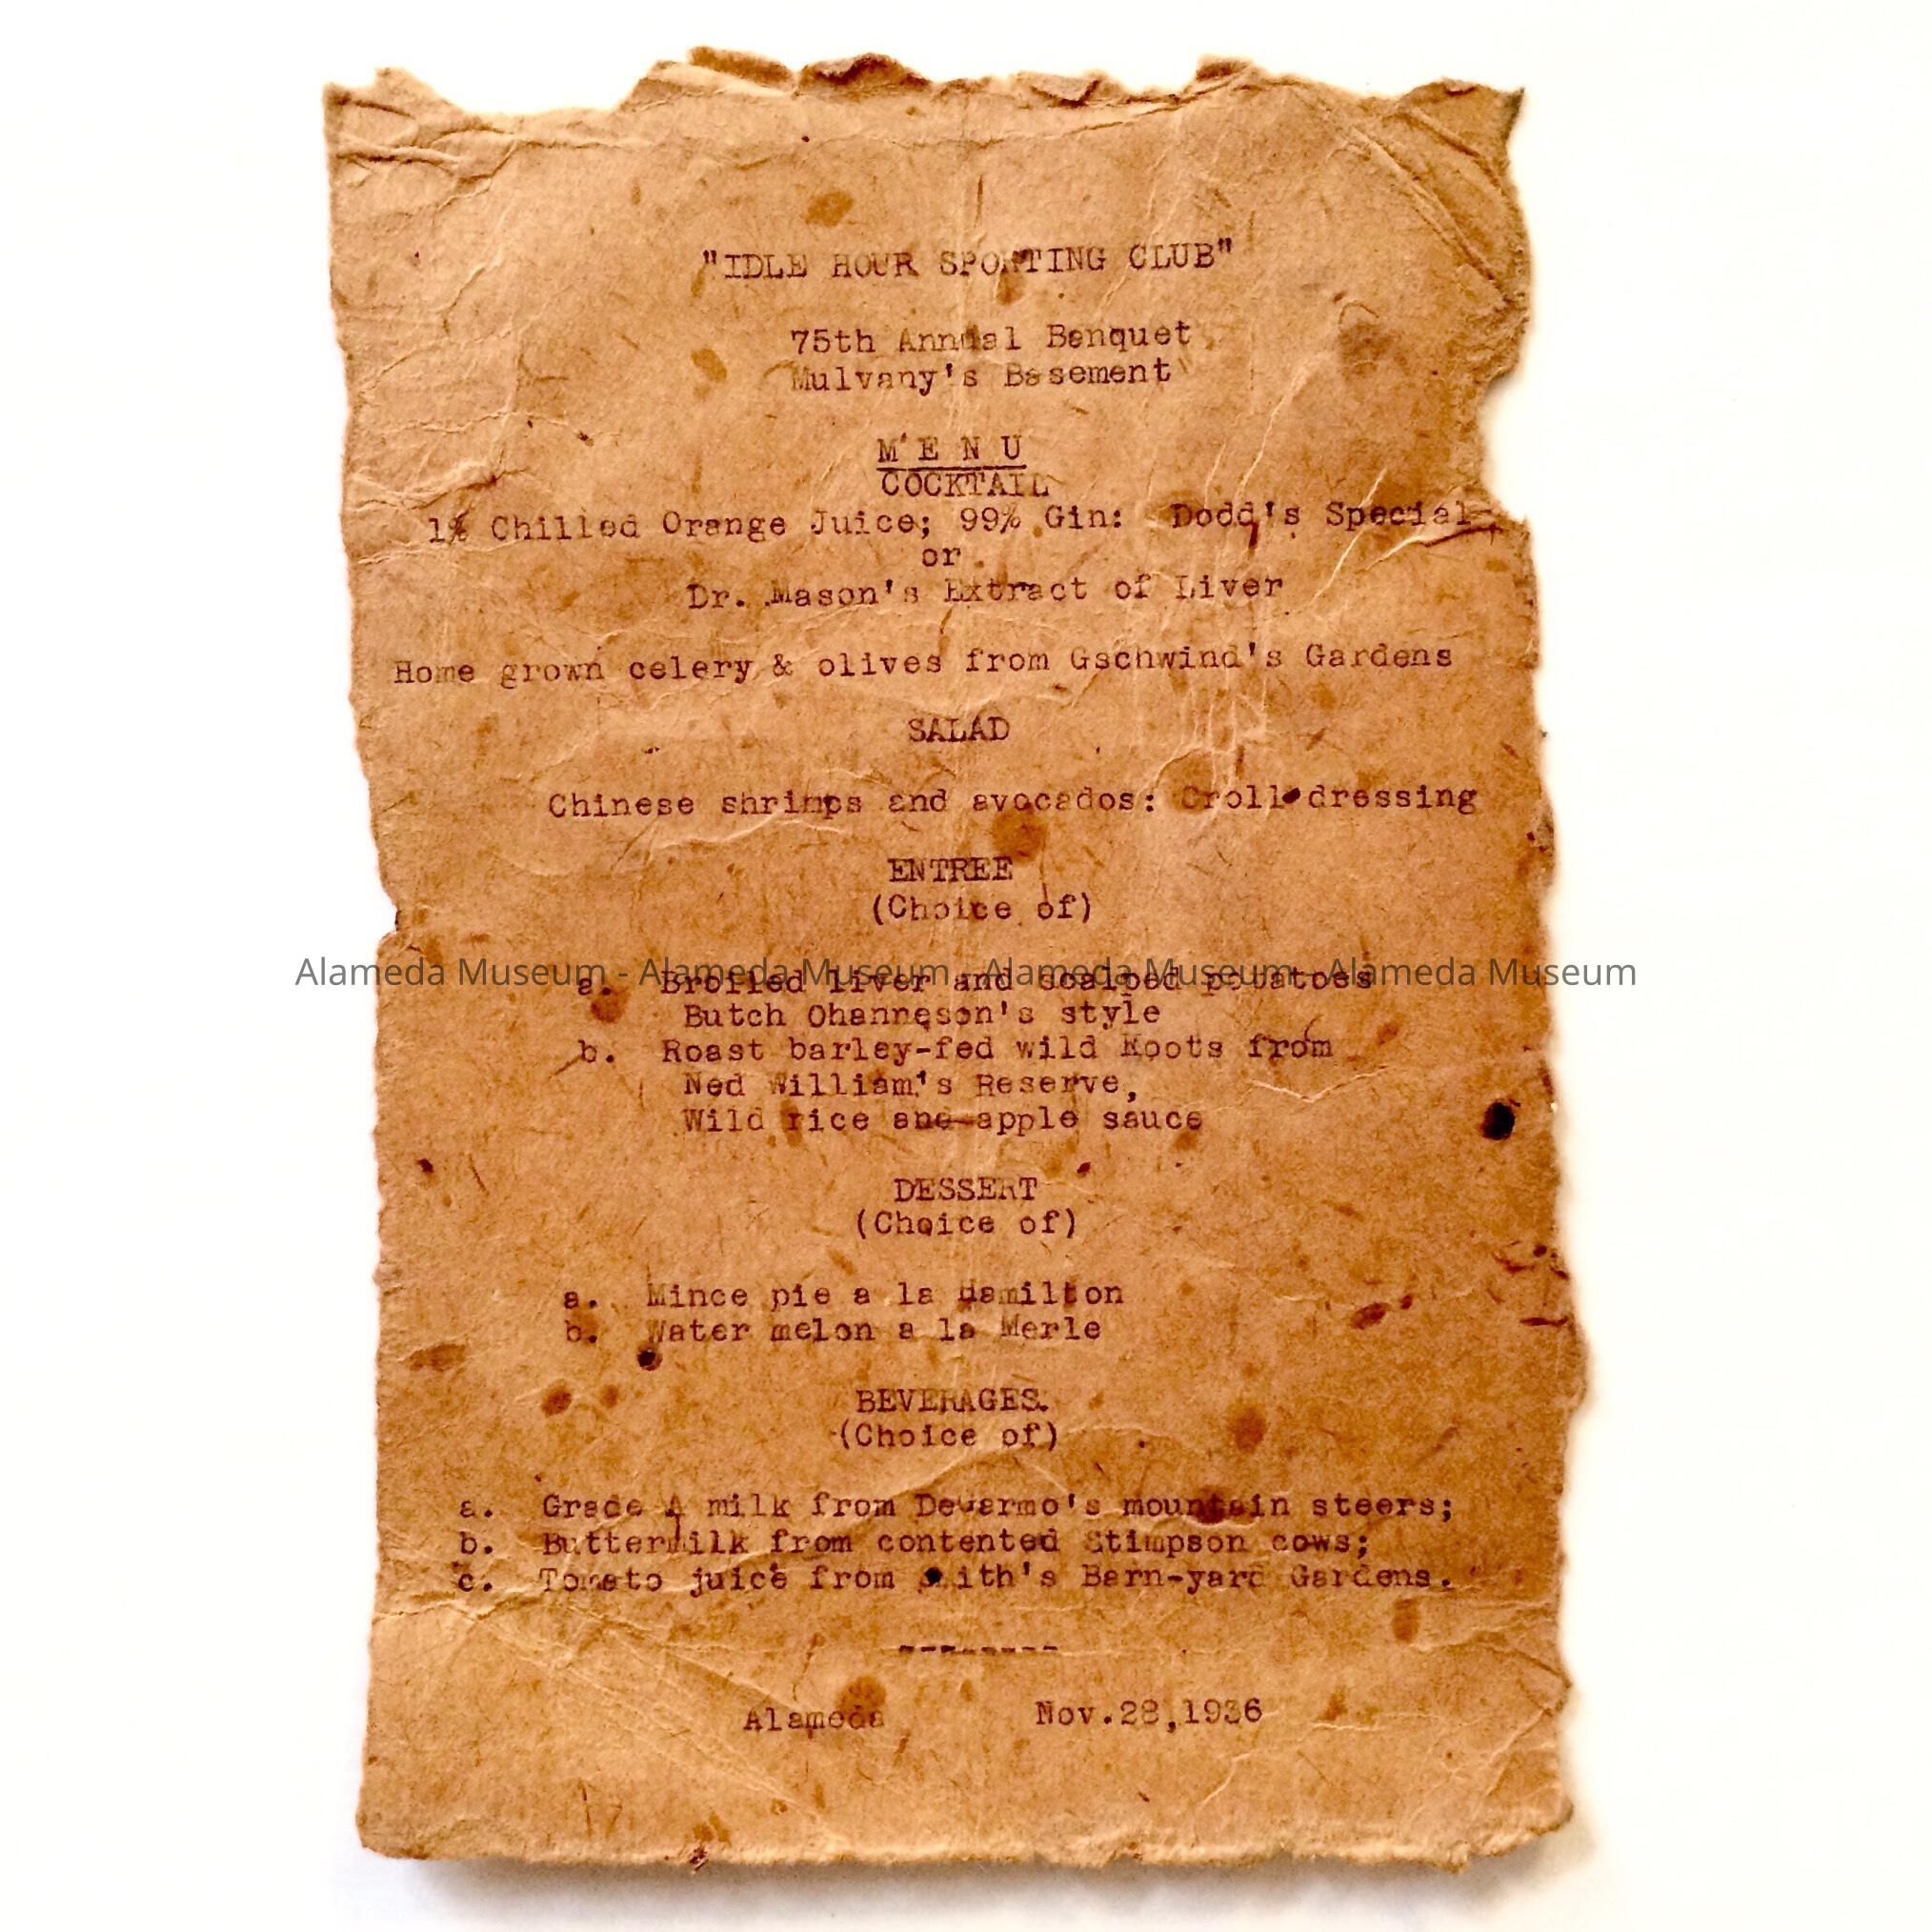 "IDLE HOUR SPORTING CLUB"
75th Annual Benquet
Mulvany's Basement
M E N U
COCKTAIL
1% Chilled Orange Juice; 99% Gin: Dodd's Special
or
Dr. Mason's Extract of Liver
Home grown celery & olives from Gschwind's Gardens
SALAD
Chinese shrimps and avocados: Croll dressing
ENTREE
(Choice of)
Alameda Museum - Alameda Museum - Alameda Museum - Alameda Museum
a. Broiled liver and scalped potatoes
Butch Ohanneson's style
b. Roast barley-fed wild Koots from
Ned William's Reserve,
Wild rice and apple sauce
DESSERT
(Choice of)
a. Mince pie a la Hamilton
b. Water melon a la Merle
BEVERAGES.
(Choice of)
a. Grade A milk from DeVarmo's mountain steers;
b. Buttermilk from contented Stimpson cows;
c. Tomato juice from Smith's Barn-yard Gardens.
---------
Alameda Nov.28,1936